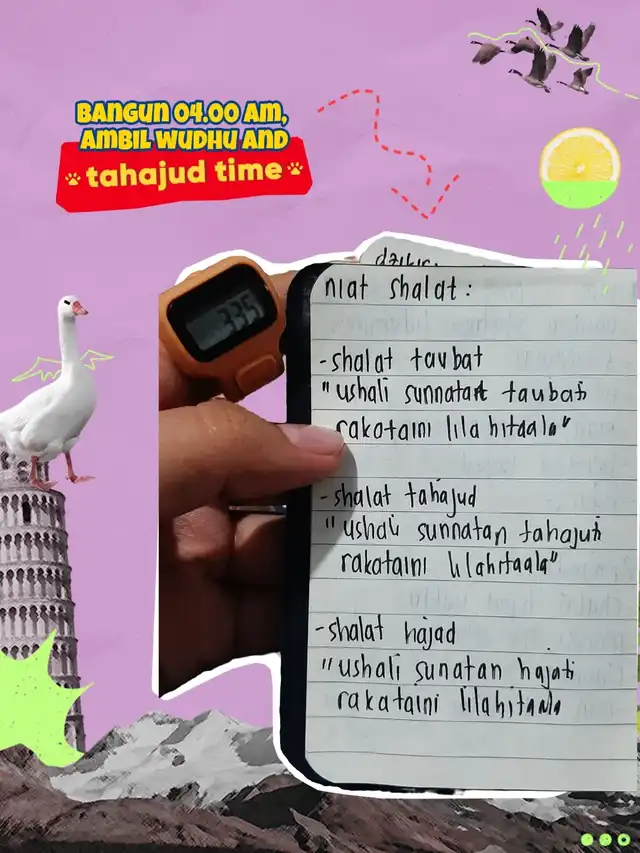 BANGUN 04.00 AM,
AMBIL WUDHU AND
tahajud time
dzikir:
335
niat shalat:
-shalat taubat
"ushali sunnatat taubati
rakataini lilahitaala"
-shalat tahajud
"ushali sunnatan tahajuti
rakataini lilahitaala"
-shalat hajad
"ushali sunatan hajati
rakataini lilahitaala